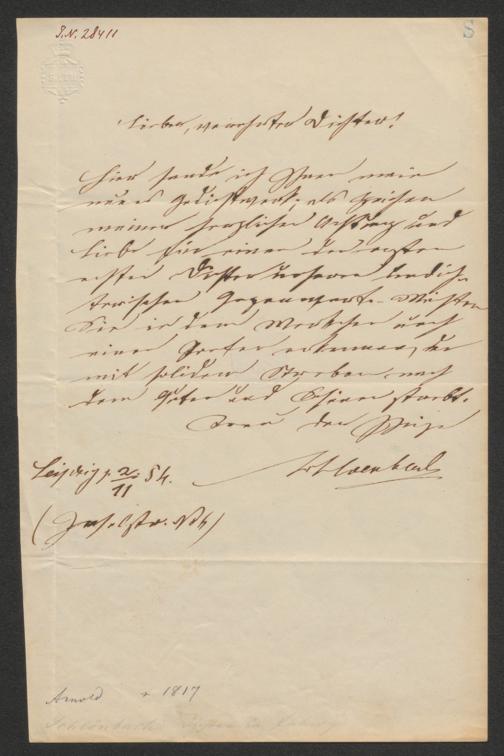 I.N. 28411
S
Lieber, verehrter Dichter!
Hier sende ich Ihnen mein
neues Gedichtwerk, als Zeichen
meiner herzlichen Achtung und
Liebe für einen der
ersten Dichter unserer
Gegenwart. Möchten
Sie in dem Werkchen auch
einen erkennen, der
mit solidem Streben nach
dem Guten und Schönen strebt.
Treu der Ihrige
Leipzig, 2/11 54.
(Inselstr. No 4)
Arnold * 1817
Schlönbach